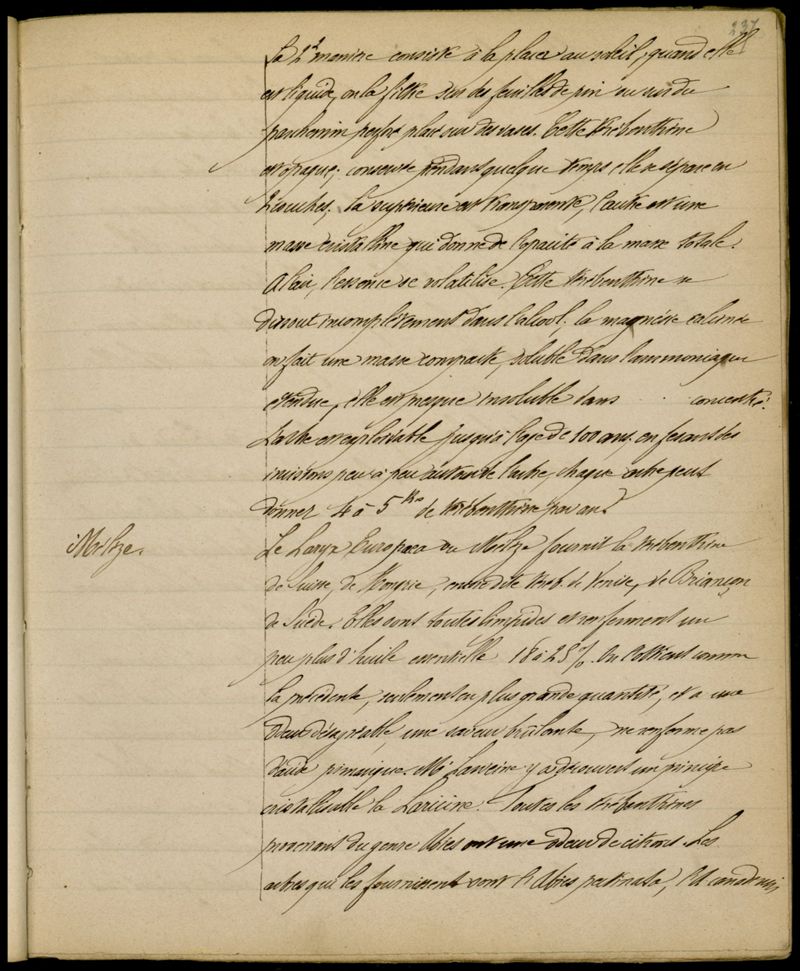 237
La 2e manière consiste à la placer au soleil, quand elle
est liquide, on la filtre sur des feuilles de pin ou sur du
pour des vases. Cette térébenthine
est opaque; conservée pendant quelque temps elle se sépare en
2 couches, la supérieure est transparente, l'autre est une
masse cristalline qui donne de l'opacité à la masse totale.
A l'air, l'essence se volatilise. Cette térébenthine se
dissout incomplètement dans l'alcool. la magnésie calcinée
en fait une masse compacte, soluble dans l'ammoniaque
étendue, elle est presque insoluble dans . . concentré.
L'arbre est exploitable jusqu'à l'age de 100 ans en faisant des
incisions peu à peu autour de l'arbre, chaque arbre peut
donner 4 à 5 Kos de térébenthine par an.
Mélèze.
Le Larix Europaea ou Mélèze fournit la térébenthine
de Suisse, de Hongrie, encore dite téréb. de Venise, de Briançon
de Suède. Elles sont toutes limpides et renferment un
peu plus d'huile essentielle 18 à 25 %. On l'obtient comme
la précédente, seulement en plus grande quantité, et a une
odeur désagréable, une saveur brûlante, ne renferme pas
d'acide pimarique. Mr y a découvert un principe
cristallisable la Laricine. Toutes les térébenthines
provenant du genre Abies ont une odeur de citron. Les
arbres qui les fournissent sont l'Abies pectinata, l'A. canadensis